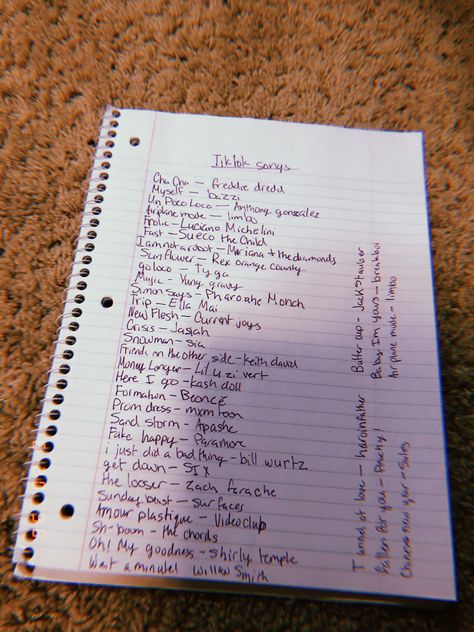 Tiktok songs
Cha Cha — freddie dredd
Myself — bazzi
Un Poco Loco — Anthony gonzalez
airplane mode — limbo
Frolic — Luciano Michelini
Fast — Sueco the Child
Iamnotarobot — Mariana + the diamonds
Sunflower — Rex orange county
go loco — Tyga
Magic — Yung gravy
Simon says — Pharoahe Monch
Trip — Ella Mai
New Flesh — Current joys
Crisis — Jasiah
Snowman — sia
Friends on the other side - keith david
Money Longer — Lil uzi vert
Here I go — kash doll
Formation — Beoncé
Prom dress — mxm toon
Sand storm — Apashe
Fake happy — Paramore
i just did a bad thing - bill wurtz
get down — SIX
the looser — Zach farache
Sunday beast — surfaces
Amour plastique — Videoclub
Sh-boom — the chords
Oh! My goodness - Shirly temple
Wait a minute! Willow Smith
Butter cup - Jack Stauber
Baby Im yours — breakbot
Air plane mode - limbo
Tunnel of love — haroinfather
Fallen for you —
Chinese new year — Sales